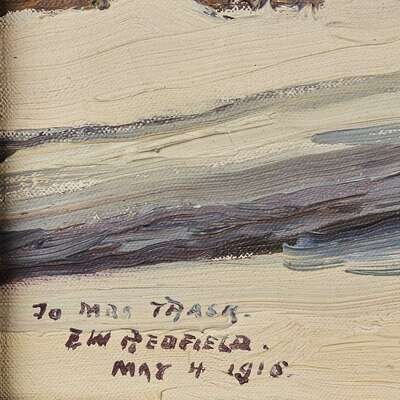 TO MRS TRASK.
E W REDFIELD.
MAY 4 1915.